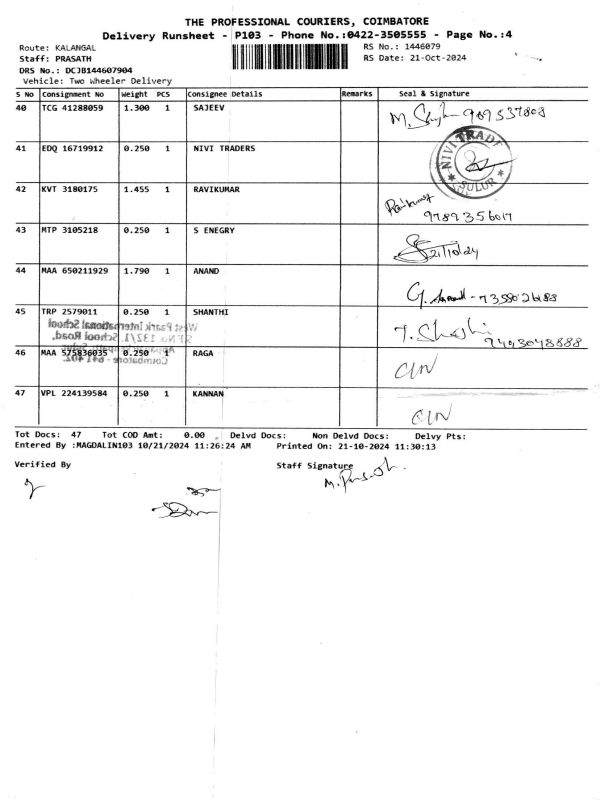 THE PROFESSIONAL COURIERS, COIMBATORE
Delivery Runsheet - P103 - Phone No.:0422-3505555 - Page No.:4
Route: KALANGAL
RS No.: 1446079
Staff: PRASATH
RS Date: 21-Oct-2024
DRS No.: DCJB144607904
Vehicle: Two Wheeler Delivery
S No Consignment No Weight PCS Consignee Details Remarks Seal & Signature
40 TCG 41288059 1.300 1 SAJEEV
41 EDQ 16719912 0.250 1 NIVI TRADERS
NIVI TRADE
SULUR
42 KVT 3180175 1.455 1 RAVIKUMAR
9789356017
43 MTP 3105218 0.250 1 S ENEGRY
21/10/24
44 MAA 650211929 1.790 1 ANAND
G. Anand -
45 TRP 2579011 0.250 1 SHANTHI
West Paark International School
S.F.No. 132/1, School Road,
Coimbatore - 641 402.
9493048888
46 MAA 575836035 0.250 1 RAGA
47 VPL 224139584 0.250 1 KANNAN
Tot Docs: 47 Tot COD Amt: 0.00 Delvd Docs: Non Delvd Docs: Delvy Pts:
Entered By :MAGDALIN103 10/21/2024 11:26:24 AM Printed On: 21-10-2024 11:30:13
Verified By Staff Signature